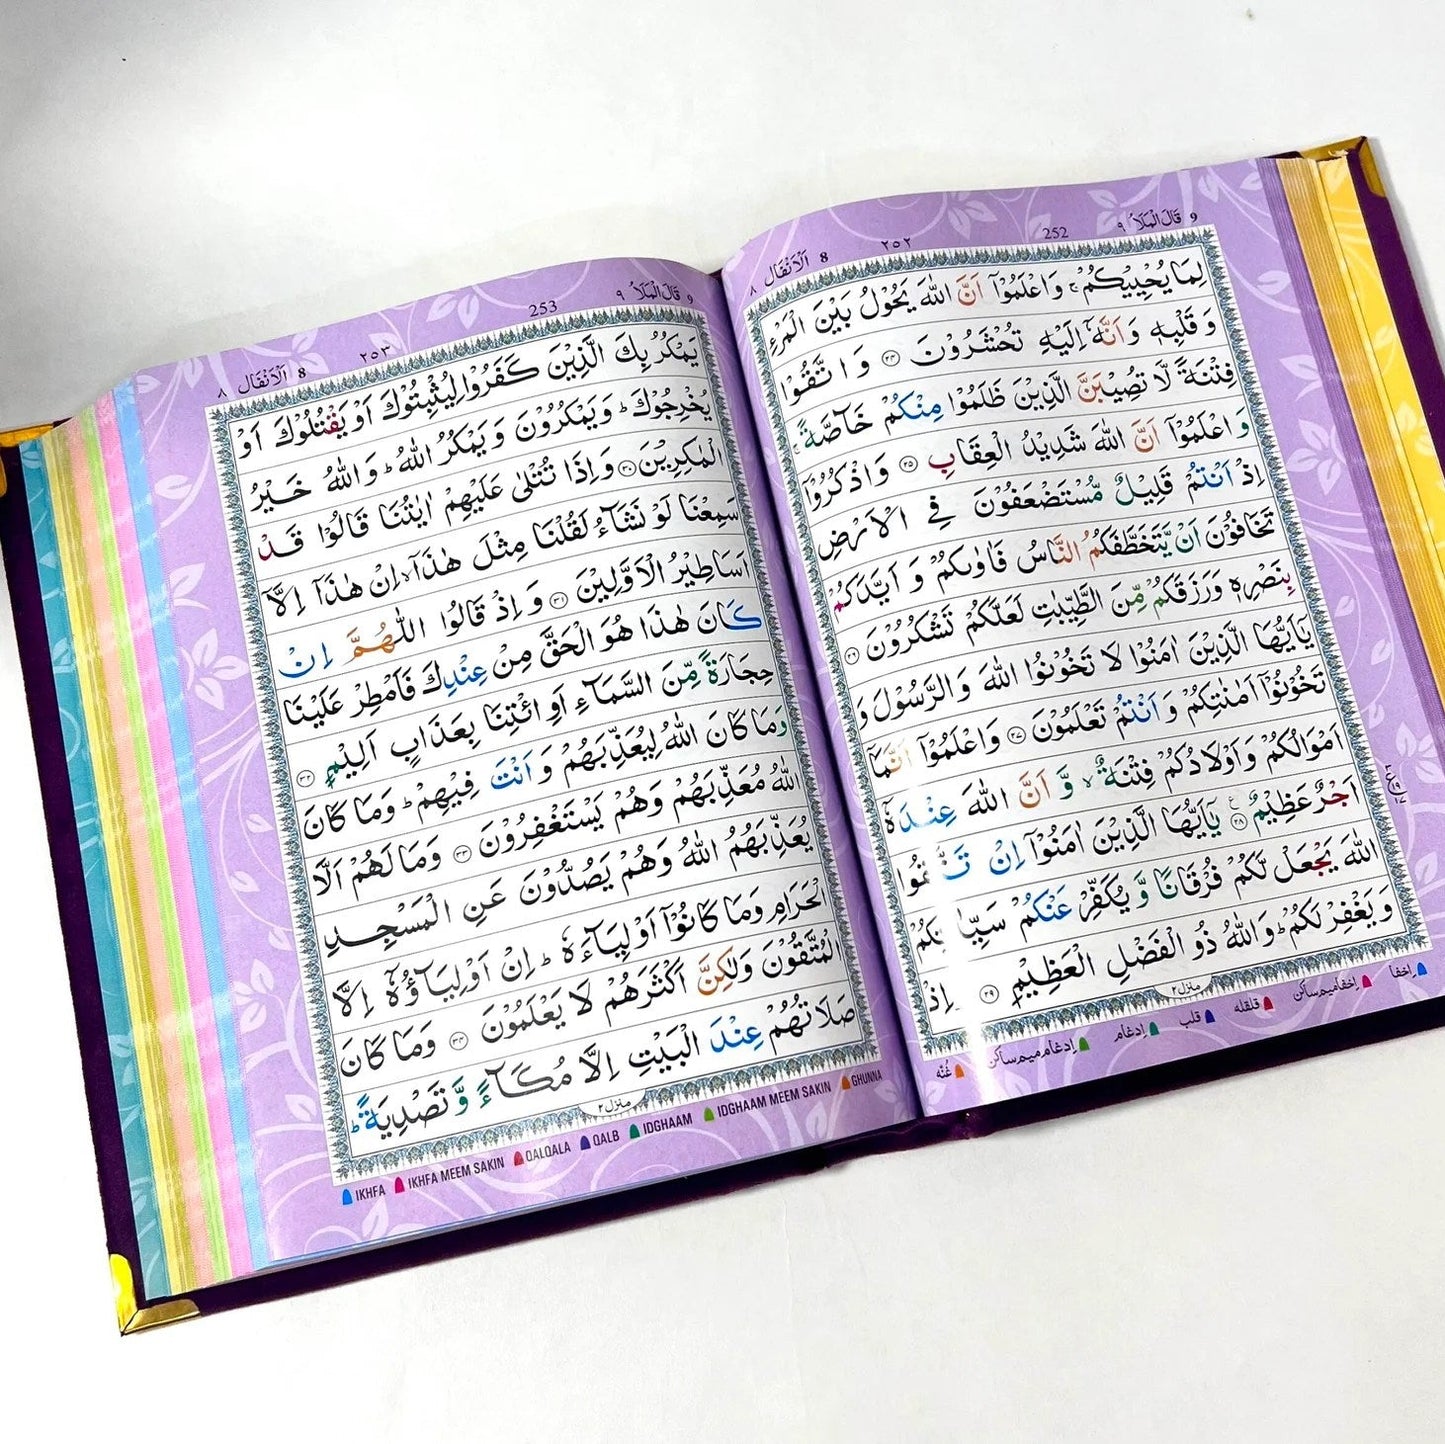 9 قَالَ الْمَلَاُ ٩
252
٢٥٢
8 اَلْاَنْفَال ٨
لِمَا يُحْيِيْكُمْ ۚ وَاعْلَمُوْۤا اَنَّ اللّٰهَ يَحُوْلُ بَيْنَ الْمَرْءِ
وَ قَلْبِهٖ وَ اَنَّهٗۤ اِلَيْهِ تُحْشَرُوْنَ ﴿۲۴﴾ وَ اتَّقُوْا
فِتْنَةً لَّا تُصِيْبَنَّ الَّذِيْنَ ظَلَمُوْا مِنْكُمْ خَآصَّةً ۚ
وَ اعْلَمُوْۤا اَنَّ اللّٰهَ شَدِيْدُ الْعِقَابِ ﴿۲۵﴾ وَ اذْكُرُوْۤا
اِذْ اَنْتُمْ قَلِيْلٌ مُّسْتَضْعَفُوْنَ فِي الْاَرْضِ
تَخَافُوْنَ اَنْ يَّتَخَطَّفَكُمُ النَّاسُ فَاٰوٰىكُمْ وَ اَيَّدَكُمْ
بِنَصْرِهٖ وَرَزَقَكُمْ مِّنَ الطَّيِّبٰتِ لَعَلَّكُمْ تَشْكُرُوْنَ ﴿۲۶﴾
يٰۤاَيُّهَا الَّذِيْنَ اٰمَنُوْا لَا تَخُوْنُوا اللّٰهَ وَ الرَّسُوْلَ وَ
تَخُوْنُوْۤا اَمٰنٰتِكُمْ وَ اَنْتُمْ تَعْلَمُوْنَ ﴿۲۷﴾ وَاعْلَمُوْۤا اَنَّمَاۤ
اَمْوَالُكُمْ وَ اَوْلَادُكُمْ فِتْنَةٌ ۙ وَّ اَنَّ اللّٰهَ عِنْدَهٗۤ
اَجْرٌ عَظِيْمٌ ﴿۲۸﴾ يٰۤاَيُّهَا الَّذِيْنَ اٰمَنُوْۤا اِنْ تَتَّقُوا
اللّٰهَ يَجْعَلْ لَّكُمْ فُرْقَانًا وَّ يُكَفِّرْ عَنْكُمْ سَيِّاٰتِكُمْ
وَ يَغْفِرْ لَكُمْ ؕ وَاللّٰهُ ذُو الْفَضْلِ الْعَظِيْمِ ﴿۲۹﴾ وَ اِذْ
منزل ٢
اِخفا
اِخفا میم ساکن
قلقلہ
قلب
اِدغام
اِدغام میم ساکن
غُنّه
9 قَالَ الْمَلَاُ ٩
253
٢٥٣
8 اَلْاَنْفَال ٨
يَمْكُرُ بِكَ الَّذِيْنَ كَفَرُوْا لِيُثْبِتُوْكَ اَوْ يَقْتُلُوْكَ اَوْ
يُخْرِجُوْكَ ؕ وَ يَمْكُرُوْنَ وَ يَمْكُرُ اللّٰهُ ؕ وَ اللّٰهُ خَيْرُ
الْمٰكِرِيْنَ ﴿۳۰﴾ وَ اِذَا تُتْلٰى عَلَيْهِمْ اٰيٰتُنَا قَالُوْا قَدْ
سَمِعْنَا لَوْ نَشَآءُ لَقُلْنَا مِثْلَ هٰذَاۤ ۙ اِنْ هٰذَاۤ اِلَّاۤ
اَسَاطِيْرُ الْاَوَّلِيْنَ ﴿۳۱﴾ وَ اِذْ قَالُوا اللّٰهُمَّ اِنْ
كَانَ هٰذَا هُوَ الْحَقَّ مِنْ عِنْدِكَ فَاَمْطِرْ عَلَيْنَا
حِجَارَةً مِّنَ السَّمَآءِ اَوِ ائْتِنَا بِعَذَابٍ اَلِيْمٍ ﴿۳۲﴾
وَمَا كَانَ اللّٰهُ لِيُعَذِّبَهُمْ وَ اَنْتَ فِيْهِمْ ؕ وَمَا كَانَ
اللّٰهُ مُعَذِّبَهُمْ وَهُمْ يَسْتَغْفِرُوْنَ ﴿۳۳﴾ وَمَا لَهُمْ اَلَّا
يُعَذِّبَهُمُ اللّٰهُ وَهُمْ يَصُدُّوْنَ عَنِ الْمَسْجِدِ
الْحَرَامِ وَمَا كَانُوْۤا اَوْلِيَآءَهٗ ؕ اِنْ اَوْلِيَآؤُهٗۤ اِلَّا
الْمُتَّقُوْنَ وَلٰكِنَّ اَكْثَرَهُمْ لَا يَعْلَمُوْنَ ﴿۳۴﴾ وَمَا كَانَ
صَلَاتُهُمْ عِنْدَ الْبَيْتِ اِلَّا مُكَآءً وَّ تَصْدِيَةً ؕ
منزل ٢
IKHFA
IKHFA MEEM SAKIN
QALQALA
QALB
IDGHAAM
IDGHAAM MEEM SAKIN
GHUNNA